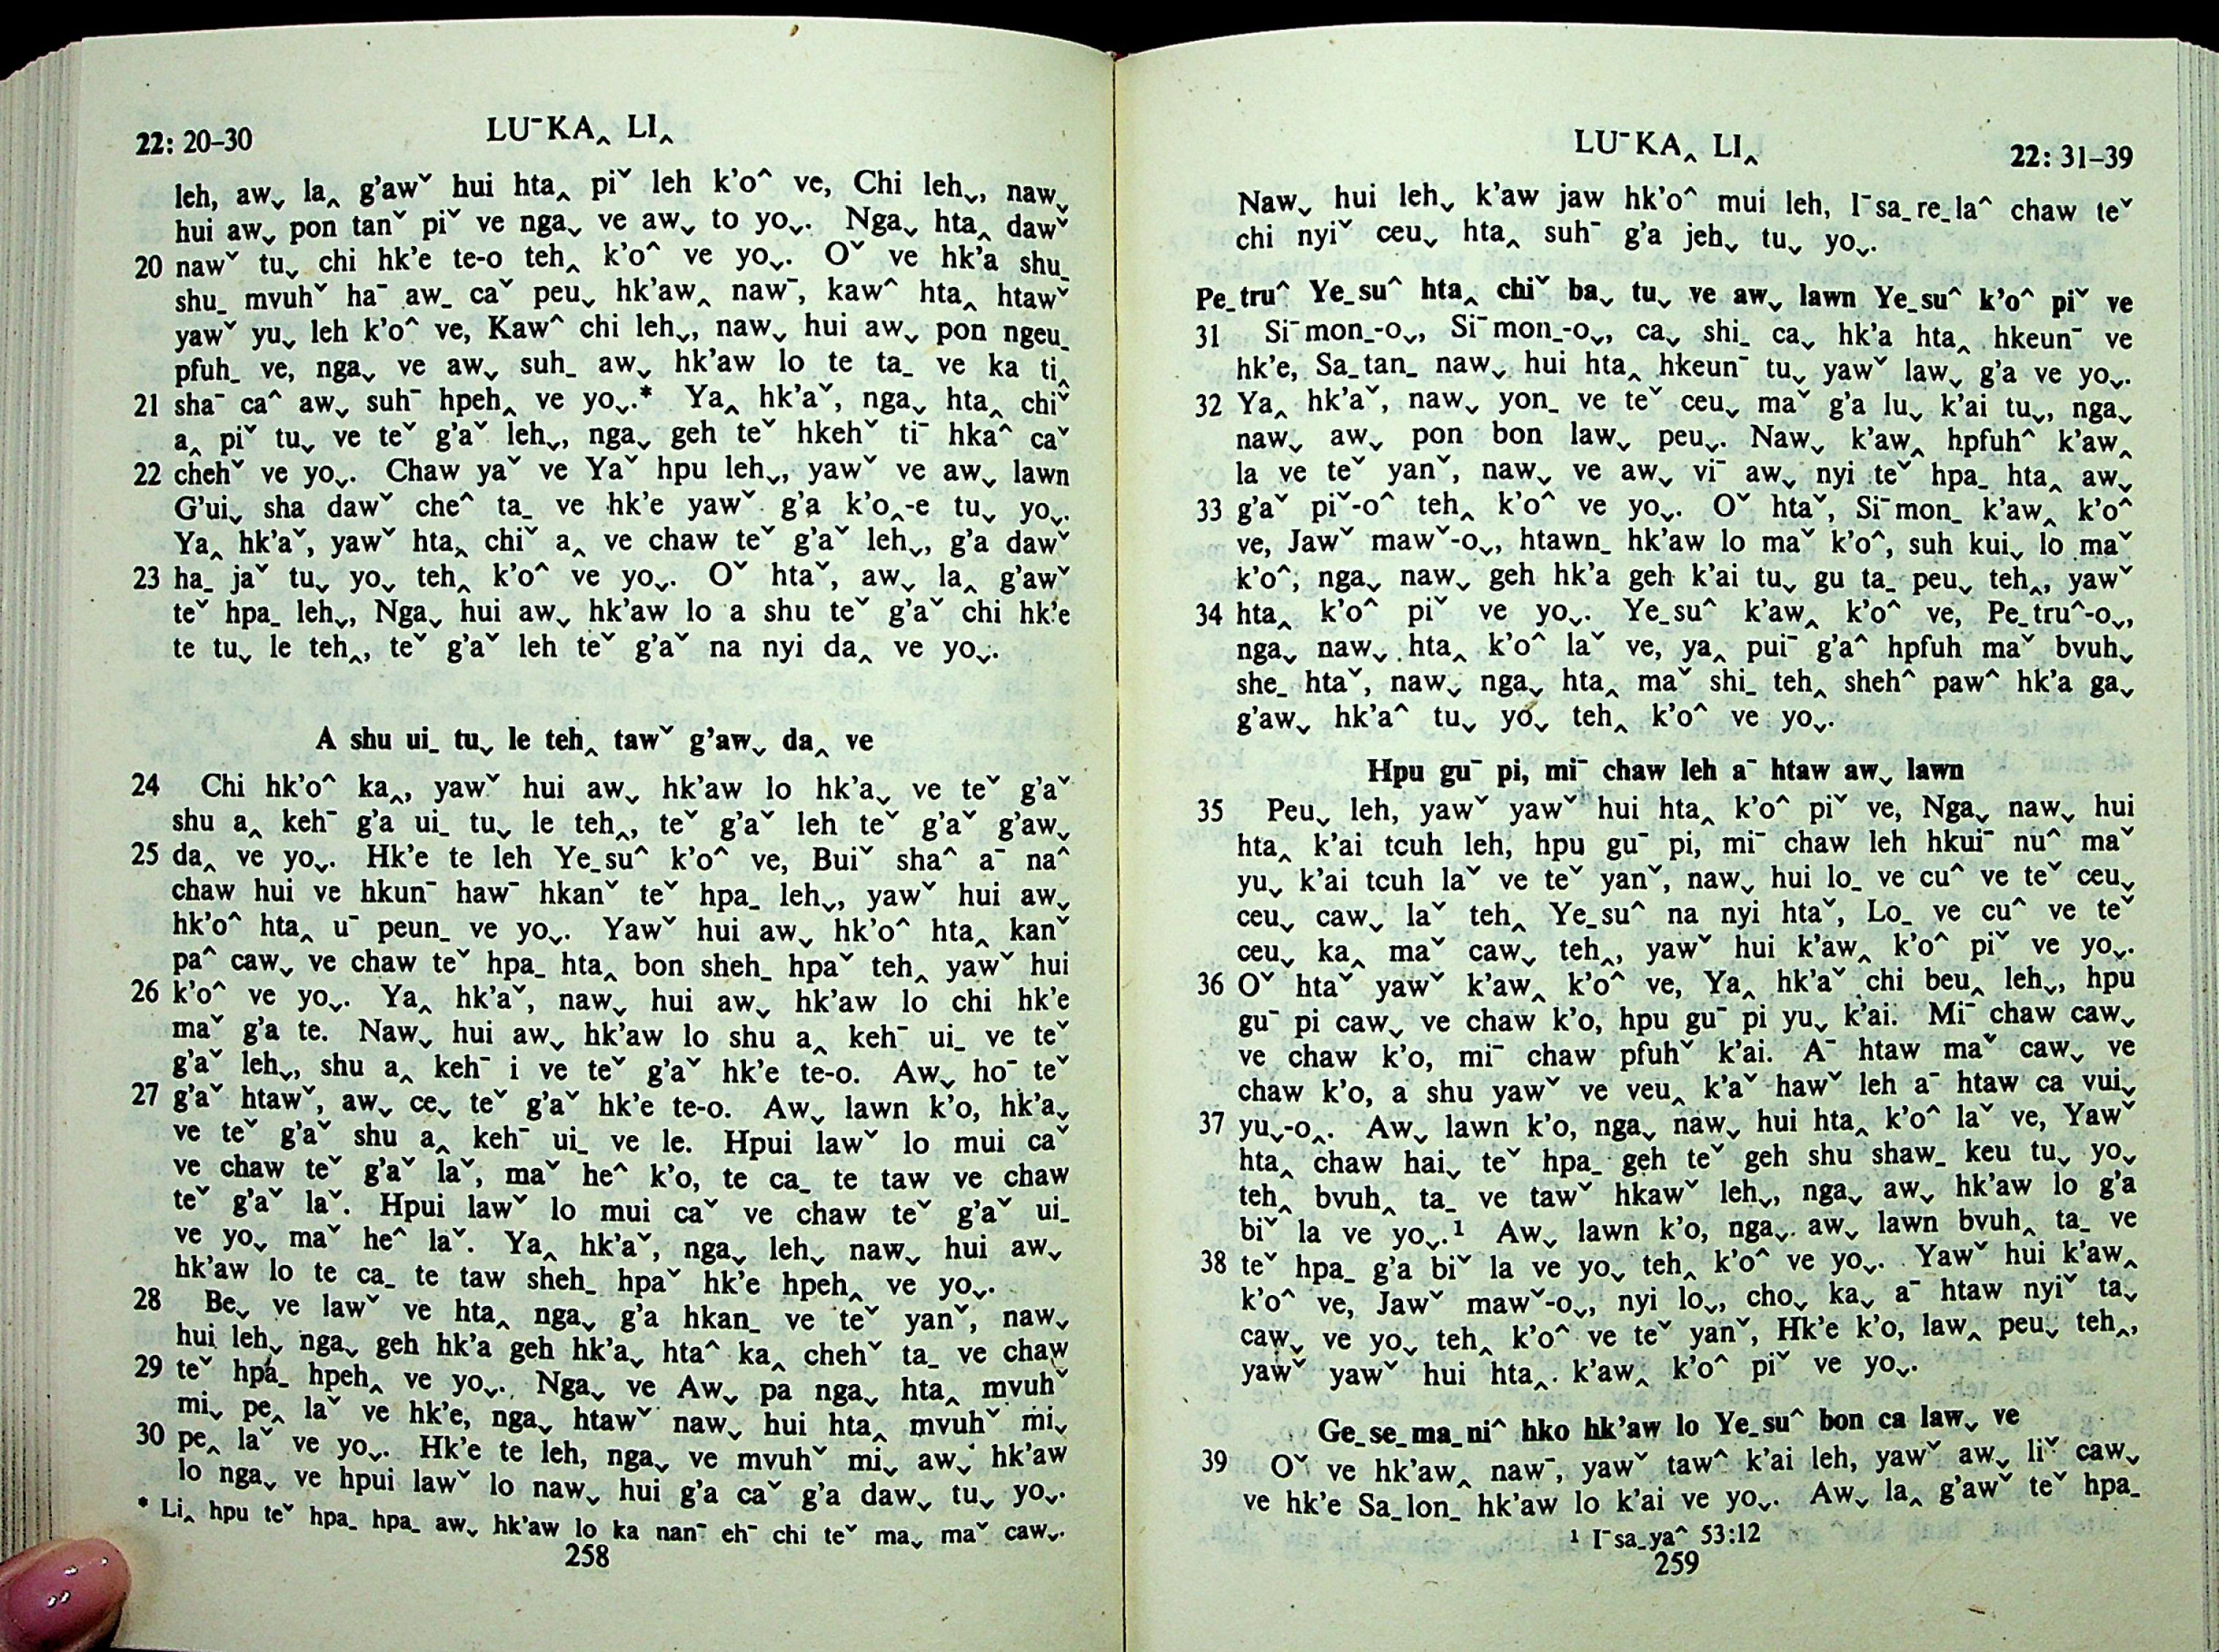 22: 20–30
LUˉKA‸ LI‸
leh, aw˯ la‸ g’awˇ hui hta‸ piˇ leh k’o^ ve, Chi leh˯, naw˯
hui aw˯ pon tanˇ piˇ ve nga˯ ve aw˯ to yo˯. Nga˯ hta‸ dawˇ
20 nawˇ tu˯ chi hk’e te-o teh‸ k’o^ ve yo˯. Oˇ ve hk’a shu_
shu_ mvuhˇ haˉ aw_ caˇ peu˯ hk’aw‸ nawˉ, kaw^ hta‸ htawˇ
yawˇ yu˯ leh k’o^ ve, Kaw^ chi leh˯, naw˯ hui aw˯ pon ngeu_
pfuh_ ve, nga˯ ve aw˯ suh_ aw˯ hk’aw lo te ta_ ve ka ti‸
21 shaˉ ca^ aw˯ suhˉ hpeh‸ ve yo˯.* Ya‸ hk’aˇ, nga˯ hta‸ chiˇ
a‸ piˇ tu˯ ve teˇ g’aˇ leh˯, nga˯ geh teˇ hkehˇ tiˉ hka^ caˇ
22 chehˇ ve yo˯. Chaw yaˇ ve Yaˇ hpu leh˯, yawˇ ve aw˯ lawn
G’ui˯ sha dawˇ che^ ta_ ve hk’e yawˇ g’a k’o‸-e tu˯ yo˯.
Ya‸ hk’aˇ, yawˇ hta‸ chiˇ a‸ ve chaw teˇ g’aˇ leh˯, g’a dawˇ
23 ha_ jaˇ tu˯ yo˯ teh‸ k’o^ ve yo˯. Oˇ htaˇ, aw˯ la‸ g’awˇ
teˇ hpa_ leh˯, Nga˯ hui aw˯ hk’aw lo a shu teˇ g’aˇ chi hk’e
te tu˯ le teh‸, teˇ g’aˇ leh teˇ g’aˇ na nyi da‸ ve yo˯.
A shu ui_ tu˯ le teh‸ tawˇ g’aw˯ da‸ ve
24 Chi hk’o^ ka‸, yawˇ hui aw˯ hk’aw lo hk’a˯ ve teˇ g’aˇ
shu a‸ kehˉ g’a ui_ tu˯ le teh‸, teˇ g’aˇ leh teˇ g’aˇ g’aw˯
25 da‸ ve yo˯. Hk’e te leh Ye_su^ k’o^ ve, Buiˇ sha^ aˉ na^
chaw hui ve hkunˉ hawˉ hkanˇ teˇ hpa_ leh˯, yawˇ hui aw˯
hk’o^ hta‸ uˉ peun_ ve yo˯. Yawˇ hui aw˯ hk’o^ hta‸ kanˇ
pa^ caw˯ ve chaw teˇ hpa_ hta‸ bon sheh_ hpaˇ teh‸ yawˇ hui
26 k’o^ ve yo˯. Ya‸ hk’aˇ, naw˯ hui aw˯ hk’aw lo chi hk’e
maˇ g’a te. Naw˯ hui aw˯ hk’aw lo shu a‸ kehˉ ui_ ve teˇ
g’aˇ leh˯, shu a‸ kehˉ i ve teˇ g’aˇ hk’e te-o. Aw˯ hoˉ teˇ
27 g’aˇ htawˇ, aw˯ ce˯ teˇ g’aˇ hk’e te-o. Aw˯ lawn k’o, hk’a˯
ve teˇ g’aˇ shu a‸ kehˉ ui_ ve le. Hpui lawˇ lo mui caˇ
ve chaw teˇ g’aˇ laˇ, maˇ he^ k’o, te ca_ te taw ve chaw
teˇ g’aˇ laˇ. Hpui lawˇ lo mui caˇ ve chaw teˇ g’aˇ ui_
ve yo˯ maˇ he^ laˇ. Ya‸ hk’aˇ, nga˯ leh˯ naw˯ hui aw˯
hk’aw lo te ca_ te taw sheh_ hpaˇ hk’e hpeh‸ ve yo˯.
28 Be˯ ve lawˇ ve hta‸ nga˯ g’a hkan_ ve teˇ yanˇ, naw˯
hui leh˯ nga˯ geh hk’a geh hk’a˯ hta^ ka‸ chehˇ ta_ ve chaw
29 teˇ hpa_ hpeh‸ ve yo˯. Nga˯ ve Aw˯ pa nga˯ hta‸ mvuhˇ
mi˯ pe‸ laˇ ve hk’e, nga˯ htawˇ naw˯ hui hta‸ mvuhˇ mi˯
30 pe‸ laˇ ve yo˯. Hk’e te leh, nga˯ ve mvuhˇ mi˯ aw˯ hk’aw
lo nga˯ ve hpui lawˇ lo naw˯ hui g’a caˇ g’a daw˯ tu˯ yo˯.
* Li‸ hpu teˇ hpa_ hpa_ aw˯ hk’aw lo ka nanˉ ehˉ chi teˇ ma˯ maˇ caw˯.
258
LUˉKA‸ LI‸
22: 31–39
Naw˯ hui leh˯ k’aw jaw hk’o^ mui leh, Iˉsa_re_la^ chaw teˇ
chi nyiˇ ceu˯ hta‸ suhˉ g’a jeh˯ tu˯ yo˯.
Pe_tru^ Ye_su^ hta‸ chiˇ ba˯ tu˯ ve aw˯ lawn Ye_su^ k’o^ piˇ ve
31 Siˉmon_-o˯, Siˉmon_-o˯, ca˯ shi_ ca˯ hk’a hta‸ hkeunˉ ve
hk’e, Sa_tan_ naw˯ hui hta‸ hkeunˉ tu˯ yawˇ law˯ g’a ve yo˯.
32 Ya‸ hk’aˇ, naw˯ yon_ ve teˇ ceu˯ maˇ g’a lu˯ k’ai tu˯, nga˯
naw˯ aw˯ pon bon law˯ peu˯. Naw˯ k’aw‸ hpfuh^ k’aw‸
la ve teˇ yanˇ, naw˯ ve aw˯ viˉ aw˯ nyi teˇ hpa_ hta‸ aw˯
33 g’aˇ piˇ-o^ teh‸ k’o^ ve yo˯. Oˇ htaˇ, Siˉmon_ k’aw‸ k’o^
ve, Jawˇ mawˇ-o˯, htawn_ hk’aw lo maˇ k’o^, suh kui˯ lo maˇ
k’o^, nga˯ naw˯ geh hk’a geh k’ai tu˯ gu ta_ peu˯ teh‸, yawˇ
34 hta‸ k’o^ piˇ ve yo˯. Ye_su^ k’aw‸ k’o^ ve, Pe_tru^-o˯,
nga˯ naw˯ hta‸ k’o^ laˇ ve, ya‸ puiˉ g’a^ hpfuh maˇ bvuh˯
she_ htaˇ, naw˯ nga˯ hta‸ maˇ shi_ teh‸ sheh^ paw^ hk’a ga˯
g’aw˯ hk’a^ tu˯ yo˯ teh‸ k’o^ ve yo˯.
Hpu guˉ pi, miˉ chaw leh aˉ htaw aw˯ lawn
35 Peu˯ leh, yawˇ yawˇ hui hta‸ k’o^ piˇ ve, Nga˯ naw˯ hui
hta‸ k’ai tcuh leh, hpu guˉ pi, miˉ chaw leh hkuiˉ nu^ maˇ
yu˯ k’ai tcuh laˇ ve teˇ yanˇ, naw˯ hui lo_ ve cu^ ve teˇ ceu˯
ceu˯ caw˯ laˇ teh‸ Ye_su^ na nyi htaˇ, Lo_ ve cu^ ve teˇ
ceu˯ ka‸ maˇ caw˯ teh‸, yawˇ hui k’aw‸ k’o^ piˇ ve yo˯.
36 Oˇ htaˇ yawˇ k’aw‸ k’o^ ve, Ya‸ hk’aˇ chi beu‸ leh˯, hpu
guˉ pi caw˯ ve chaw k’o, hpu guˉ pi yu˯ k’ai. Miˉ chaw caw˯
ve chaw k’o, miˉ chaw pfuhˇ k’ai. Aˉ htaw maˇ caw˯ ve
chaw k’o, a shu yawˇ ve veu‸ k’aˇ hawˇ leh aˉ htaw ca vui˯
37 yu˯-o‸. Aw˯ lawn k’o, nga˯ naw˯ hui hta‸ k’o^ laˇ ve, Yawˇ
hta‸ chaw hai˯ teˇ hpa_ geh teˇ geh shu shaw_ keu tu˯ yo˯
teh‸ bvuh‸ ta_ ve tawˇ hkawˇ leh˯, nga˯ aw˯ hk’aw lo g’a
biˇ la ve yo˯.¹ Aw˯ lawn k’o, nga˯ aw˯ lawn bvuh‸ ta_ ve
38 teˇ hpa_ g’a biˇ la ve yo˯ teh‸ k’o^ ve yo˯. Yawˇ hui k’aw‸
k’o^ ve, Jawˇ mawˇ-o˯, nyi lo˯, cho˯ ka˯ aˉ htaw nyiˇ ta˯
caw˯ ve yo˯ teh‸ k’o^ ve teˇ yanˇ, Hk’e k’o, law‸ peu˯ teh‸,
yawˇ yawˇ hui hta‸ k’aw‸ k’o^ piˇ ve yo˯.
Ge_se_ma_ni^ hko hk’aw lo Ye_su^ bon ca law˯ ve
39 Oˇ ve hk’aw‸ nawˉ, yawˇ taw^ k’ai leh, yawˇ aw˯ liˇ caw˯
ve hk’e Sa_lon_ hk’aw lo k’ai ve yo˯. Aw˯ la‸ g’awˇ teˇ hpa_
¹ Iˉsa_ya^ 53:12
259